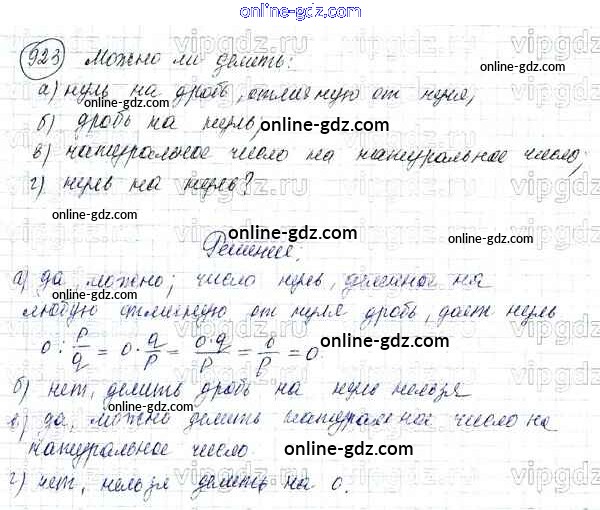 online-gdz.com
923 Можно ли делить:
а) нуль на дробь, отличную от нуля,
online-gdz.com
б) дробь на нуль,
online-gdz.com
в) натуральное число на натуральное число;
г) нуль на нуль?
online-gdz.com
online-gdz.com
Решение:
online-gdz.com
а) да можно; число нуль, деленное на
любую отличную от нуля дробь, дает нуль
online-gdz.com
0 : p/q = 0 · q/p = 0·q/p = 0/p = 0
online-gdz.com
б) нет, делить дробь на нуль нельзя
online-gdz.com
в) да, можно делить натуральное число на
натуральное число.
online-gdz.com
г) нет, нельзя делить на 0.
online-gdz.com